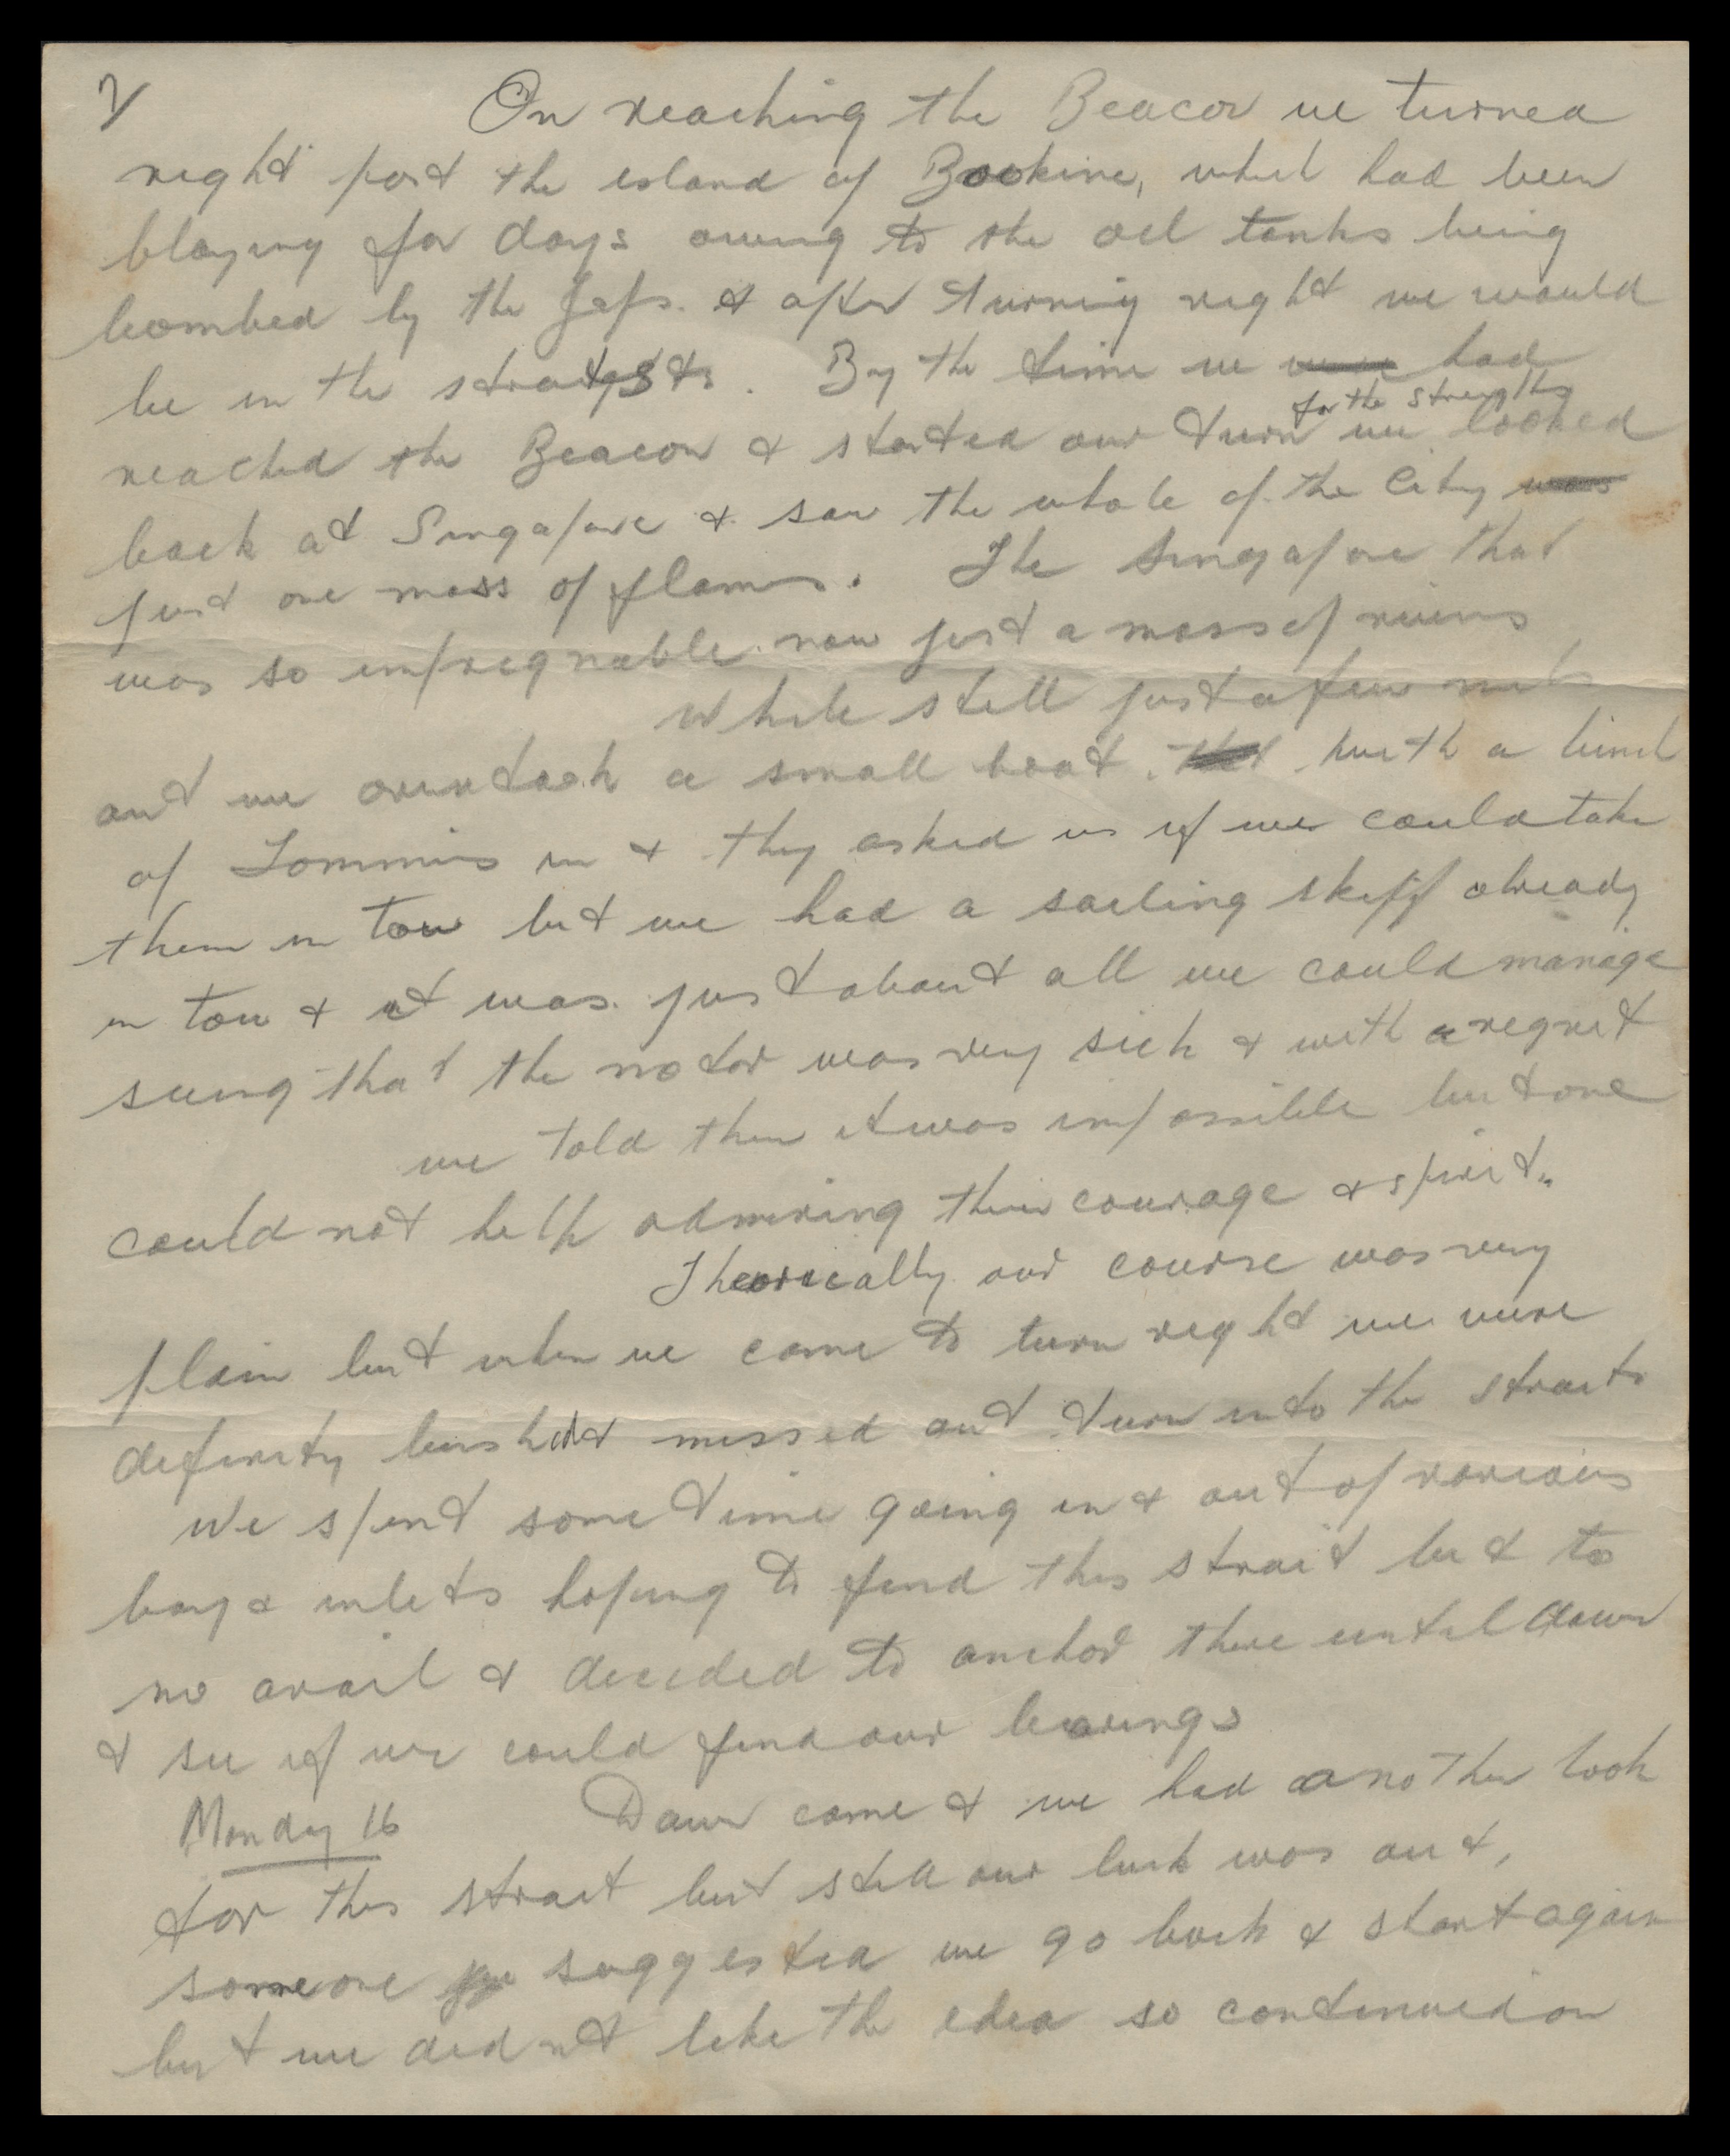 2/
On reaching the Beacon we turned
right past the island of Bookine, which had been
blazing for days owing to the oil tanks being
bombed by the Japs. & after turning right we would
be in the straits. By the time we were had
for the strengths
reached the Beacon & started our turn we looked
back at Singapore & saw the whole of the City was
just one mass of flames. The Singapore that
was so impregnable now just a mass of ruins
While still just a few mls
out we overtook a small boat, that with a bunch
of Tommies in & they asked us if we could take
them in tow but we had a sailing skiff already
in tow & it was just about all we could manage
seeing that the motor was very sick & with a regret
we told them it was impossible but one
could not help admiring their courage & spirit.
Theorically our course was very
plain but when we came to turn right we were
definitly bushed & missed out turn into the straits
We spent some time going in & out of various
bay & inlets hoping to find this strait but to
no avail & decided to anchor there until dawn
& see if we could find our bearings
Monday 16 Dawn came & we had another look
for this strait but still our luck was out,
someone suggested we go back & start again
but we did not like the idea so continued on